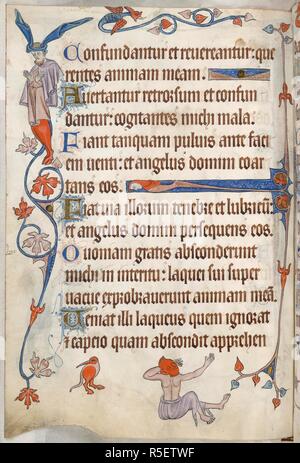 Confundantur et revereantur: que
rentes animam meam.
Avertantur retrorsum et confun
dantur: cogitantes michi mala.
Fiant tanquam puluis ante faci
em uenti: et angelus domini coar
tans eos.
Fiat uia illorum tenebre et lubricū:
et angelus domini persequens eos.
Quoniam gratis absconderunt
michi in teritu: laquei sui super
uacue exprobrauerunt animam meā.
Veniat illi laqueus quem ignorat
et capcio quam abscondit apprehen
alamy
Image ID: R5ETWF
www.alamy.com